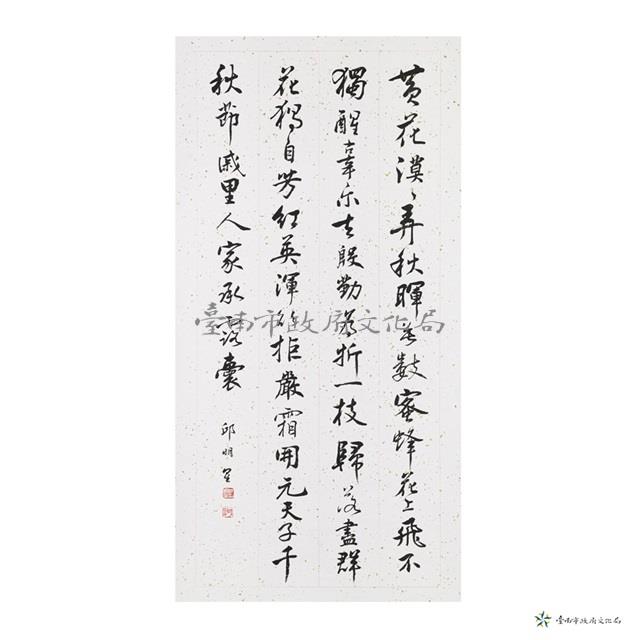 黃花漠〻弄秋暉無數蜜蜂花上飛不
獨醒辜尔去殷勤為折一枝歸落盡群
花獨自芳紅英渾欲拒嚴霜開元天子千
秋節戚里人家承露囊
邱明星
臺南市政府文化局
臺南市政府文化局